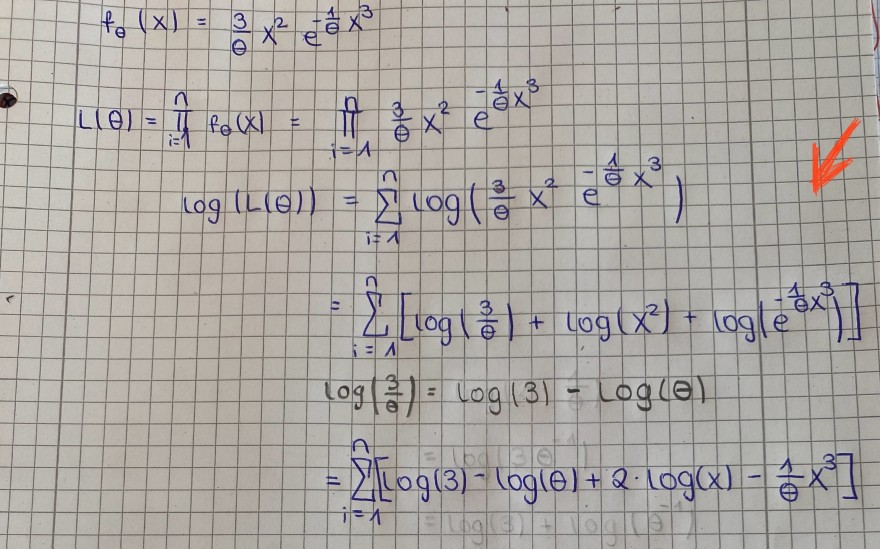 f_θ(x) = 3/θ x² e^(-1/θ x³)
L(θ) = ∏_{i=1}^{n} f_θ(x) = ∏_{i=1}^{n} 3/θ x² e^(-1/θ x³)
log(L(θ)) = ∑_{i=1}^{n} log(3/θ x² e^(-1/θ x³))
= ∑_{i=1}^{n} [log(3/θ) + log(x²) + log(e^(-1/θ x³))]
log(3/θ) = log(3) - log(θ)
= log(3θ⁻¹)
= ∑_{i=1}^{n} [log(3) - log(θ) + 2·log(x) - 1/θ x³]
= log(3) + log(θ⁻¹)